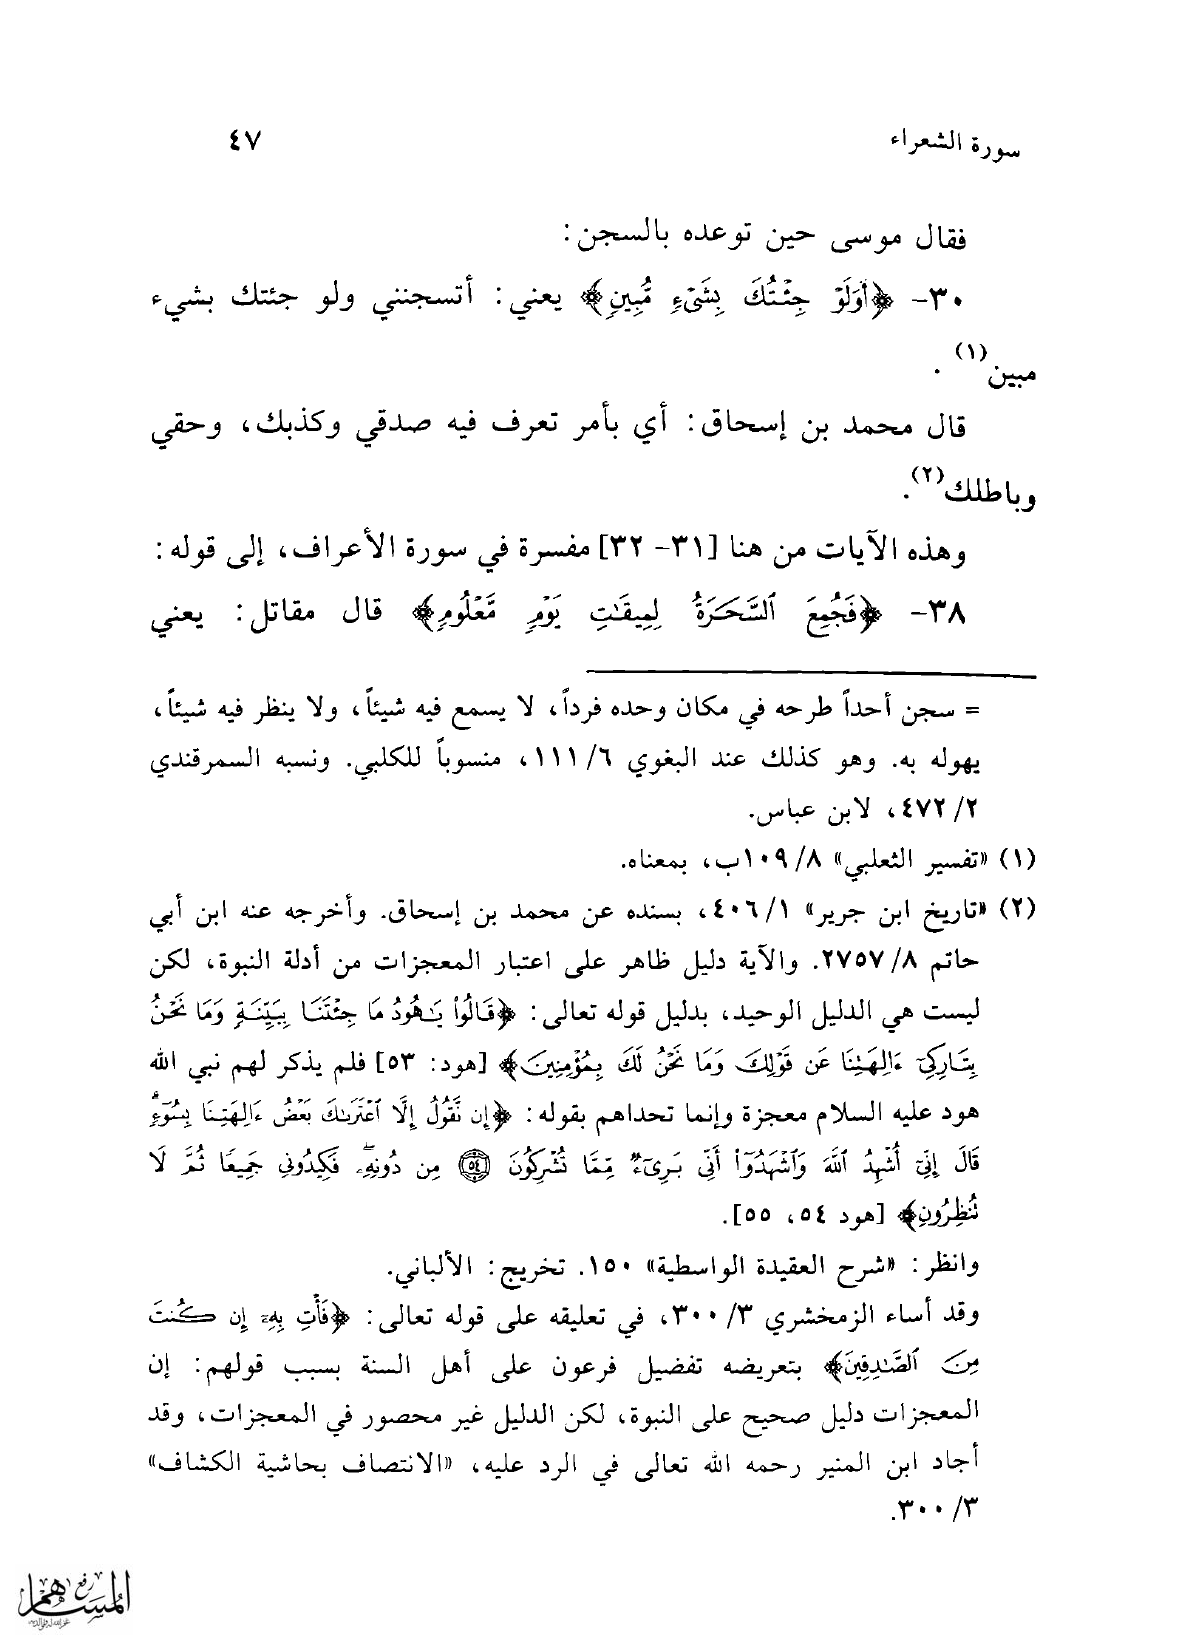 سورة الشعراء ٤٧
فقال موسى حين توعده بالسجن:
٣٠- ﴿أَوَلَوْ جِئْتُكَ بِشَيْءٍ مُّبِينٍ﴾ يعني: أتسجنني ولو جئتك بشيء
مبين(١) .
قال محمد بن إسحاق: أي بأمر تعرف فيه صدقي وكذبك، وحقي
وباطلك(٢).
وهذه الآيات من هنا [٣١- ٣٢] مفسرة في سورة الأعراف، إلى قوله:
٣٨- ﴿فَجُمِعَ ٱلسَّحَرَةُ لِمِيقَٰتِ يَوْمٍ مَّعْلُومٍ﴾ قال مقاتل: يعني
= سجن أحداً طرحه في مكان وحده فرداً، لا يسمع فيه شيئاً، ولا ينظر فيه شيئاً،
يهوله به. وهو كذلك عند البغوي ٦/ ١١١، منسوباً للكلبي. ونسبه السمرقندي
٢/ ٤٧٢، لابن عباس.
(١) «تفسير الثعلبي» ٨/ ١٠٩ب، بمعناه.
(٢) «تاريخ ابن جرير» ١/ ٤٠٦، بسنده عن محمد بن إسحاق. وأخرجه عنه ابن أبي
حاتم ٨/ ٢٧٥٧. والآية دليل ظاهر على اعتبار المعجزات من أدلة النبوة، لكن
ليست هي الدليل الوحيد، بدليل قوله تعالى: ﴿قَالُوا۟ يَٰهُودُ مَا جِئْتَنَا بِبَيِّنَةٍ وَمَا نَحْنُ
بِتَارِكِىٓ ءَالِهَتِنَا عَن قَوْلِكَ وَمَا نَحْنُ لَكَ بِمُؤْمِنِينَ﴾ [هود: ٥٣] فلم يذكر لهم نبي الله
هود عليه السلام معجزة وإنما تحداهم بقوله: ﴿إِن نَّقُولُ إِلَّا ٱعْتَرَىٰكَ بَعْضُ ءَالِهَتِنَا بِسُوٓءٍ
قَالَ إِنِّىٓ أُشْهِدُ ٱللَّهَ وَٱشْهَدُوٓا۟ أَنِّى بَرِىٓءٌ مِّمَّا تُشْرِكُونَ ٥٤ مِن دُونِهِۦ فَكِيدُونِى جَمِيعًا ثُمَّ لَا
تُنظِرُونِ﴾ [هود ٥٤، ٥٥].
وانظر: «شرح العقيدة الواسطية» ١٥٠. تخريج: الألباني.
وقد أساء الزمخشري ٣/ ٣٠٠، في تعليقه على قوله تعالى: ﴿فَأْتِ بِهِۦٓ إِن كُنتَ
مِنَ ٱلصَّٰدِقِينَ﴾ بتعريضه تفضيل فرعون على أهل السنة بسبب قولهم: إن
المعجزات دليل صحيح على النبوة، لكن الدليل غير محصور في المعجزات، وقد
أجاد ابن المنير رحمه الله تعالى في الرد عليه، «الانتصاف بحاشية الكشاف»
٣/ ٣٠٠.